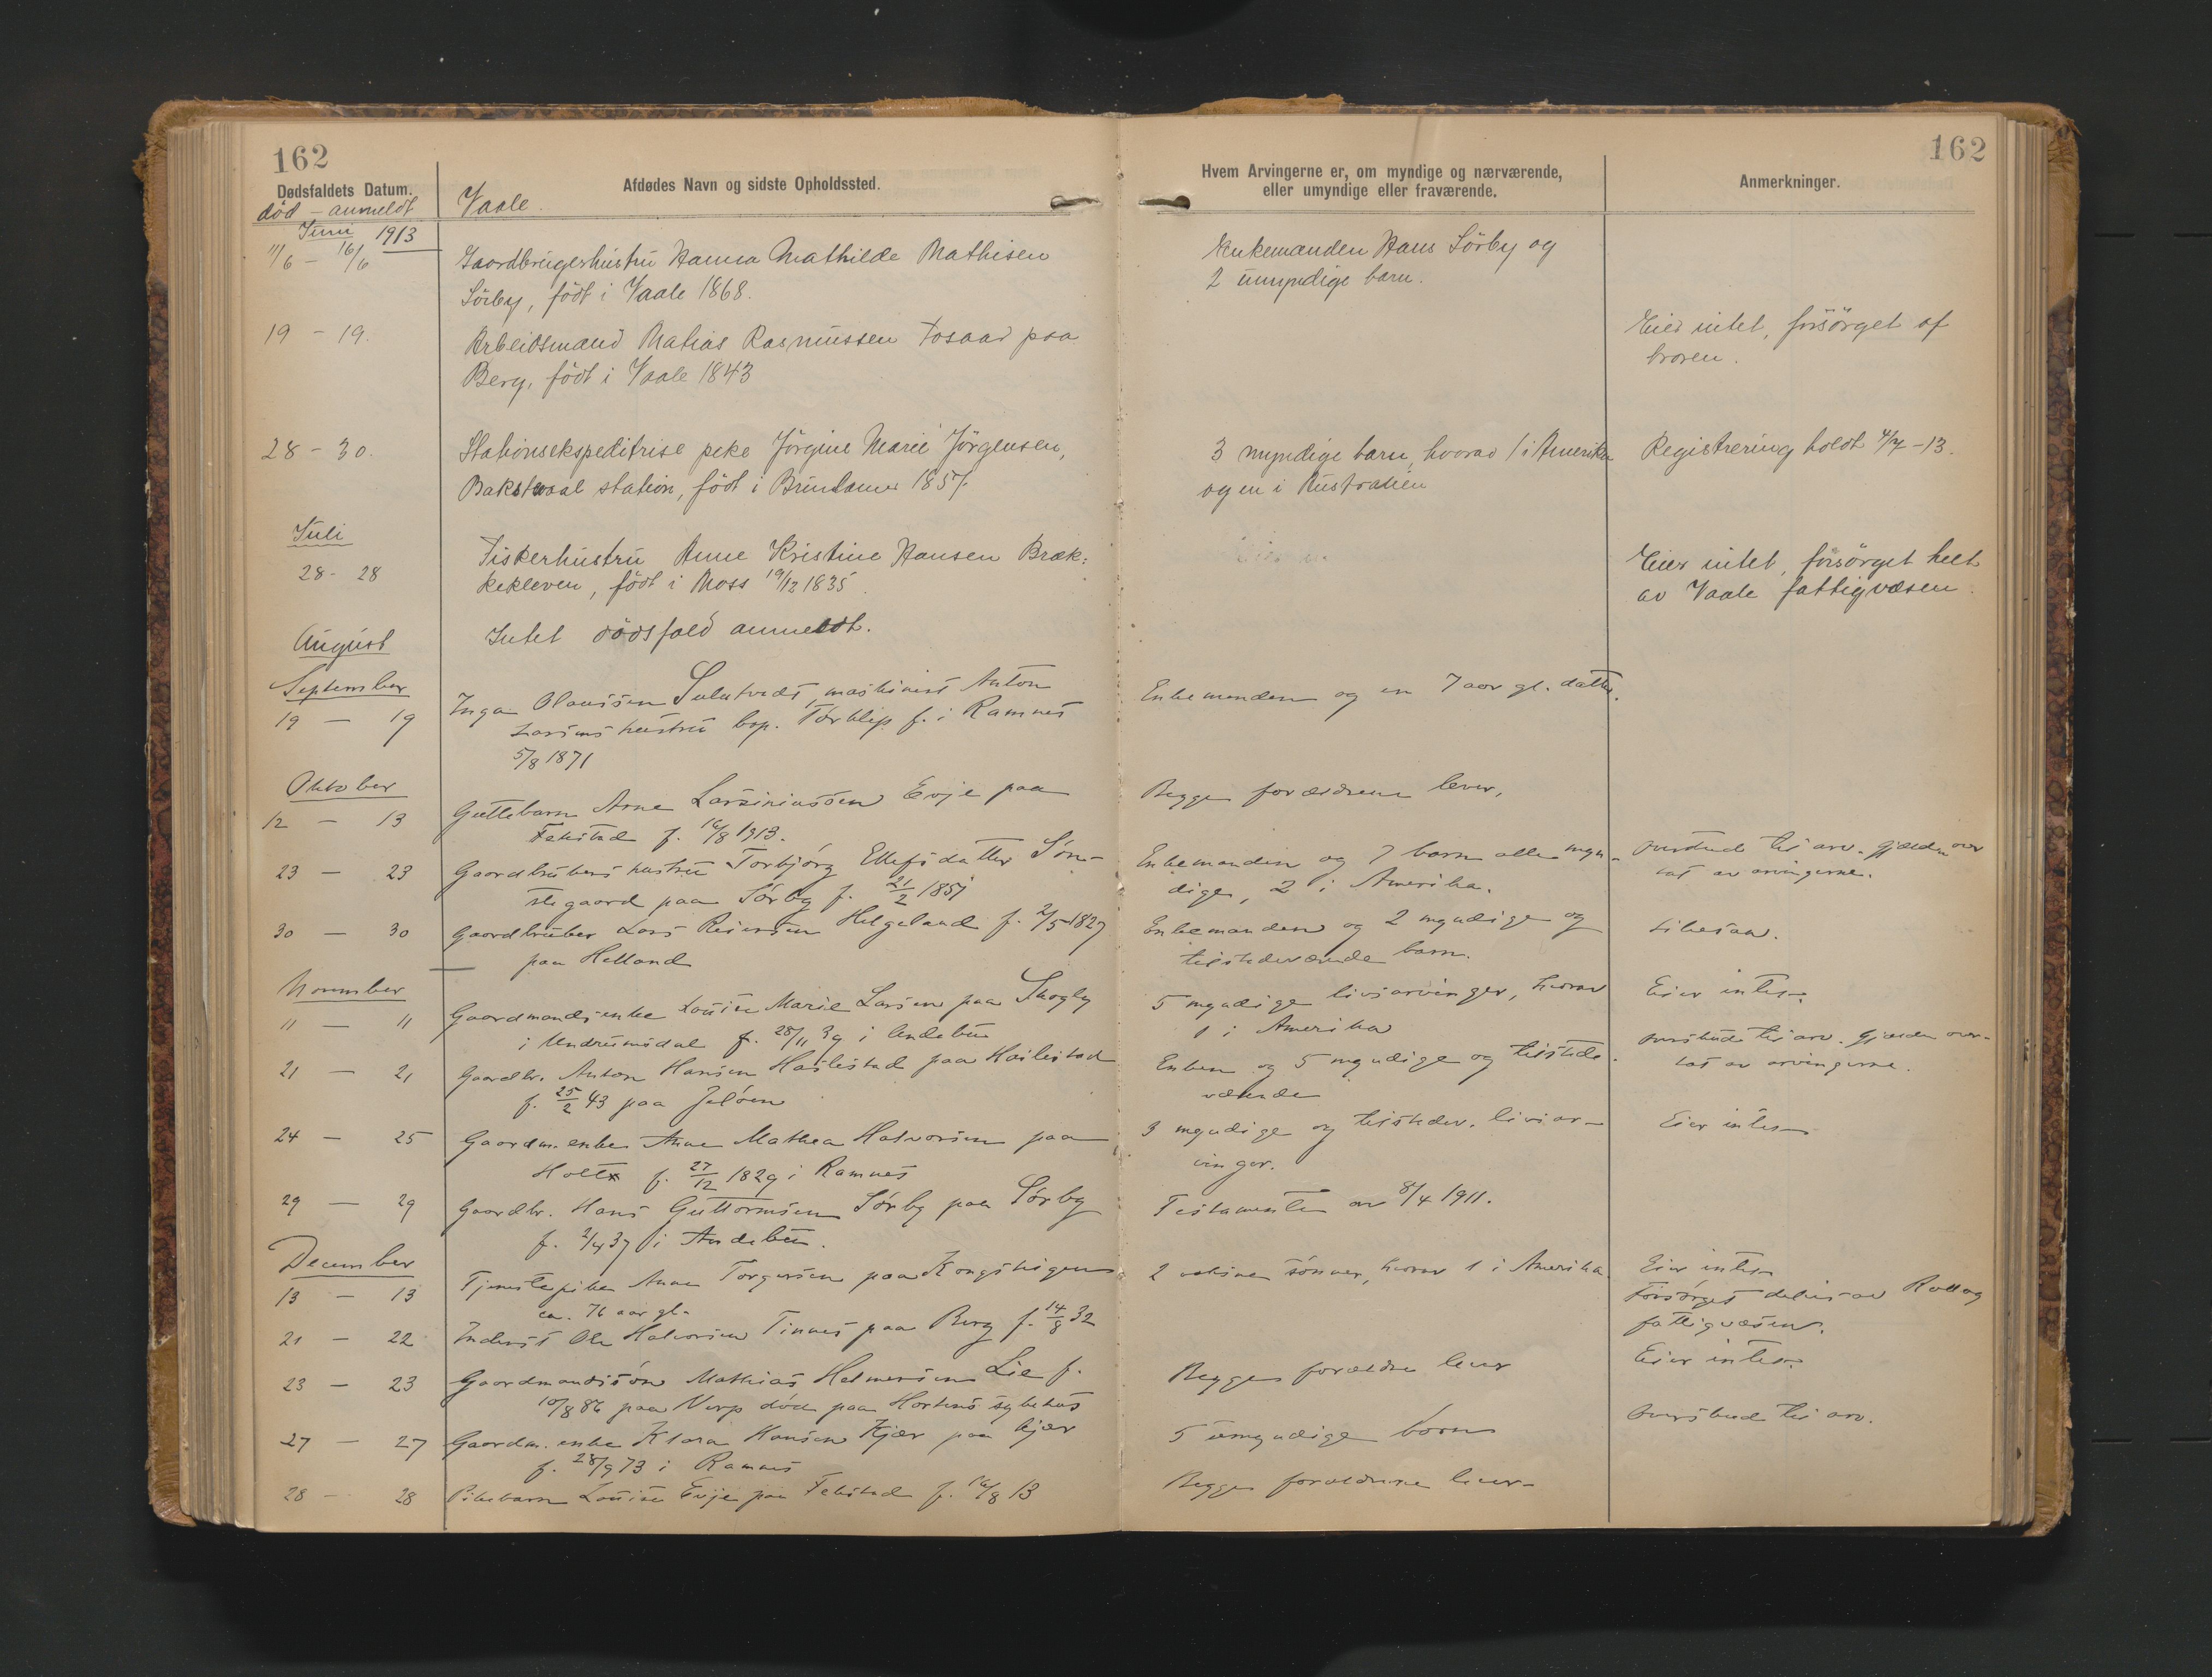 162
162
Dødsfaldets Datum.
Afdødes Navn og sidste Opholdssted.
Hvem Arvingerne er, om myndige og nærværende,
eller umyndige eller fraværende.
Anmerkninger.
død - anmeldt
Vaale.
Juni 1913
11/6 - 16/6
Gaardbrugerhustru Hanna Mathilde Mathisen
Sörby, födt i Vaale 1868.
Enkemanden Hans Sörby og
2 umyndige barn.
19 - 19.
Arbeidsmand Matias Rasmussen Fosaas paa
Berg, födt i Vaale 1843
Eied intet, forsörget af
broren.
28 - 30.
Stationsekspeditrise peke Jörgine Marie Jörgensen,
Bakstvaal station, födt i Brunlanes 1857.
3 myndige barn, hvorav 1 i Amerika
og en i Australien
Registrering holdt 4/7 - 13.
Juli
28 - 28
Fiskerhustru Anne Kristine Hansen Bræk-
kekleven, födt i Moss 19/12 1835.
Eier intet, forsörget helt
av Vaale fattigvæsen.
August
Intet dödsfald anmeldt.
September
19 - 19
Inga Olaussen Sulutvedt, maskinist Anton
Larsens hustru bop. Tørklep f. i Ramnes
5/8 1871
Enkemanden og en 7 aar gl. datter.
Oktober
12 - 13
Guttebarn Arne Larsiniussen Evje paa
Fekstad f. 16/8 1913.
Begge forældrene lever.
23 - 23
Gaardbrukers hustru Torbjørg Ellefsdatter Søn-
stegaard paa Sørby f. 21/2 1851
Enkemanden og 7 barn alle myn-
dige, 2 i Amerika.
overskud til arv. Gjælden over
tat av arvingerne.
30 - 30
Gaardbruker Lars Reiersen Helgeland f. 2/5 1827
paa Helland
Enkemanden og 2 myndige og
tilstedeværende barn.
Likesaa.
November
11 - 11
Gaardmandsenke Louise Marie Larsen paa Skogly
i Undrumsdal f. 28/11 39 i Andebu
5 myndige livsarvinger, hvorav
1 i Amerika
Eier intet.
21 - 21
Gaardbr. Anton Hansen Haslestad paa Haslestad
f. 25/2 43 paa Jeløen
Enken og 5 myndige og tilstede-
værende
overskud til arv. Gjælden over-
tat av arvingerne.
24 - 25
Gaardm. enke Anne Mathea Halvorsen paa
Holt f. 27/12 1829 i Ramnes
3 myndige og tilstedev. livsar-
vinger.
Eier intet
29 - 29
Gaardbr. Hans Guttormsen Sørby paa Sørby
f. 2/4 37 i Andebu.
Testamente av 8/4 1911.
December
13 - 13
Tjenestepike Anne Torgersen paa Kongshaugen
ca. 76 aar gl.
2 voksne sønner, hvorav 1 i Amerika.
Eier intet
21 - 22
Inderst Ole Halvorsen Tinnes paa Berg f. 14/8 32
Forsørget delvis av
fattigvæsen.
23 - 23
Gaardmandssøn Mathias Helmersen Lie f.
10/8 86 paa Verp død paa Hortens sykehus
Begge forældre lever
Eier intet.
27 - 27
Gaardm. enke Klara Hansen Kjær paa Kjær
f. 28/9 73 i Ramnes
5 umyndige børn
Overskud til arv.
28 - 28
Pikebarn Louise Evje paa Fekstad f. 16/8 13
Begge forældrene lever.